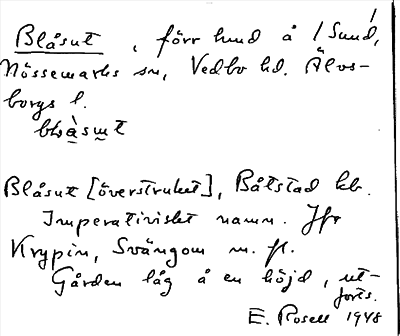 Blåsut, förr hmd å /Sund/,
Nössemarks sn, Vedbo hd. Älvs-
borgs l.
blå̱sut
Blåsut [överstruket], Båtstad kb.
Imperativiskt namn. Jfr
Krypin, Svängom m. fl.
Gården låg å en höjd, ut-
forts.
E. Rosell 1948